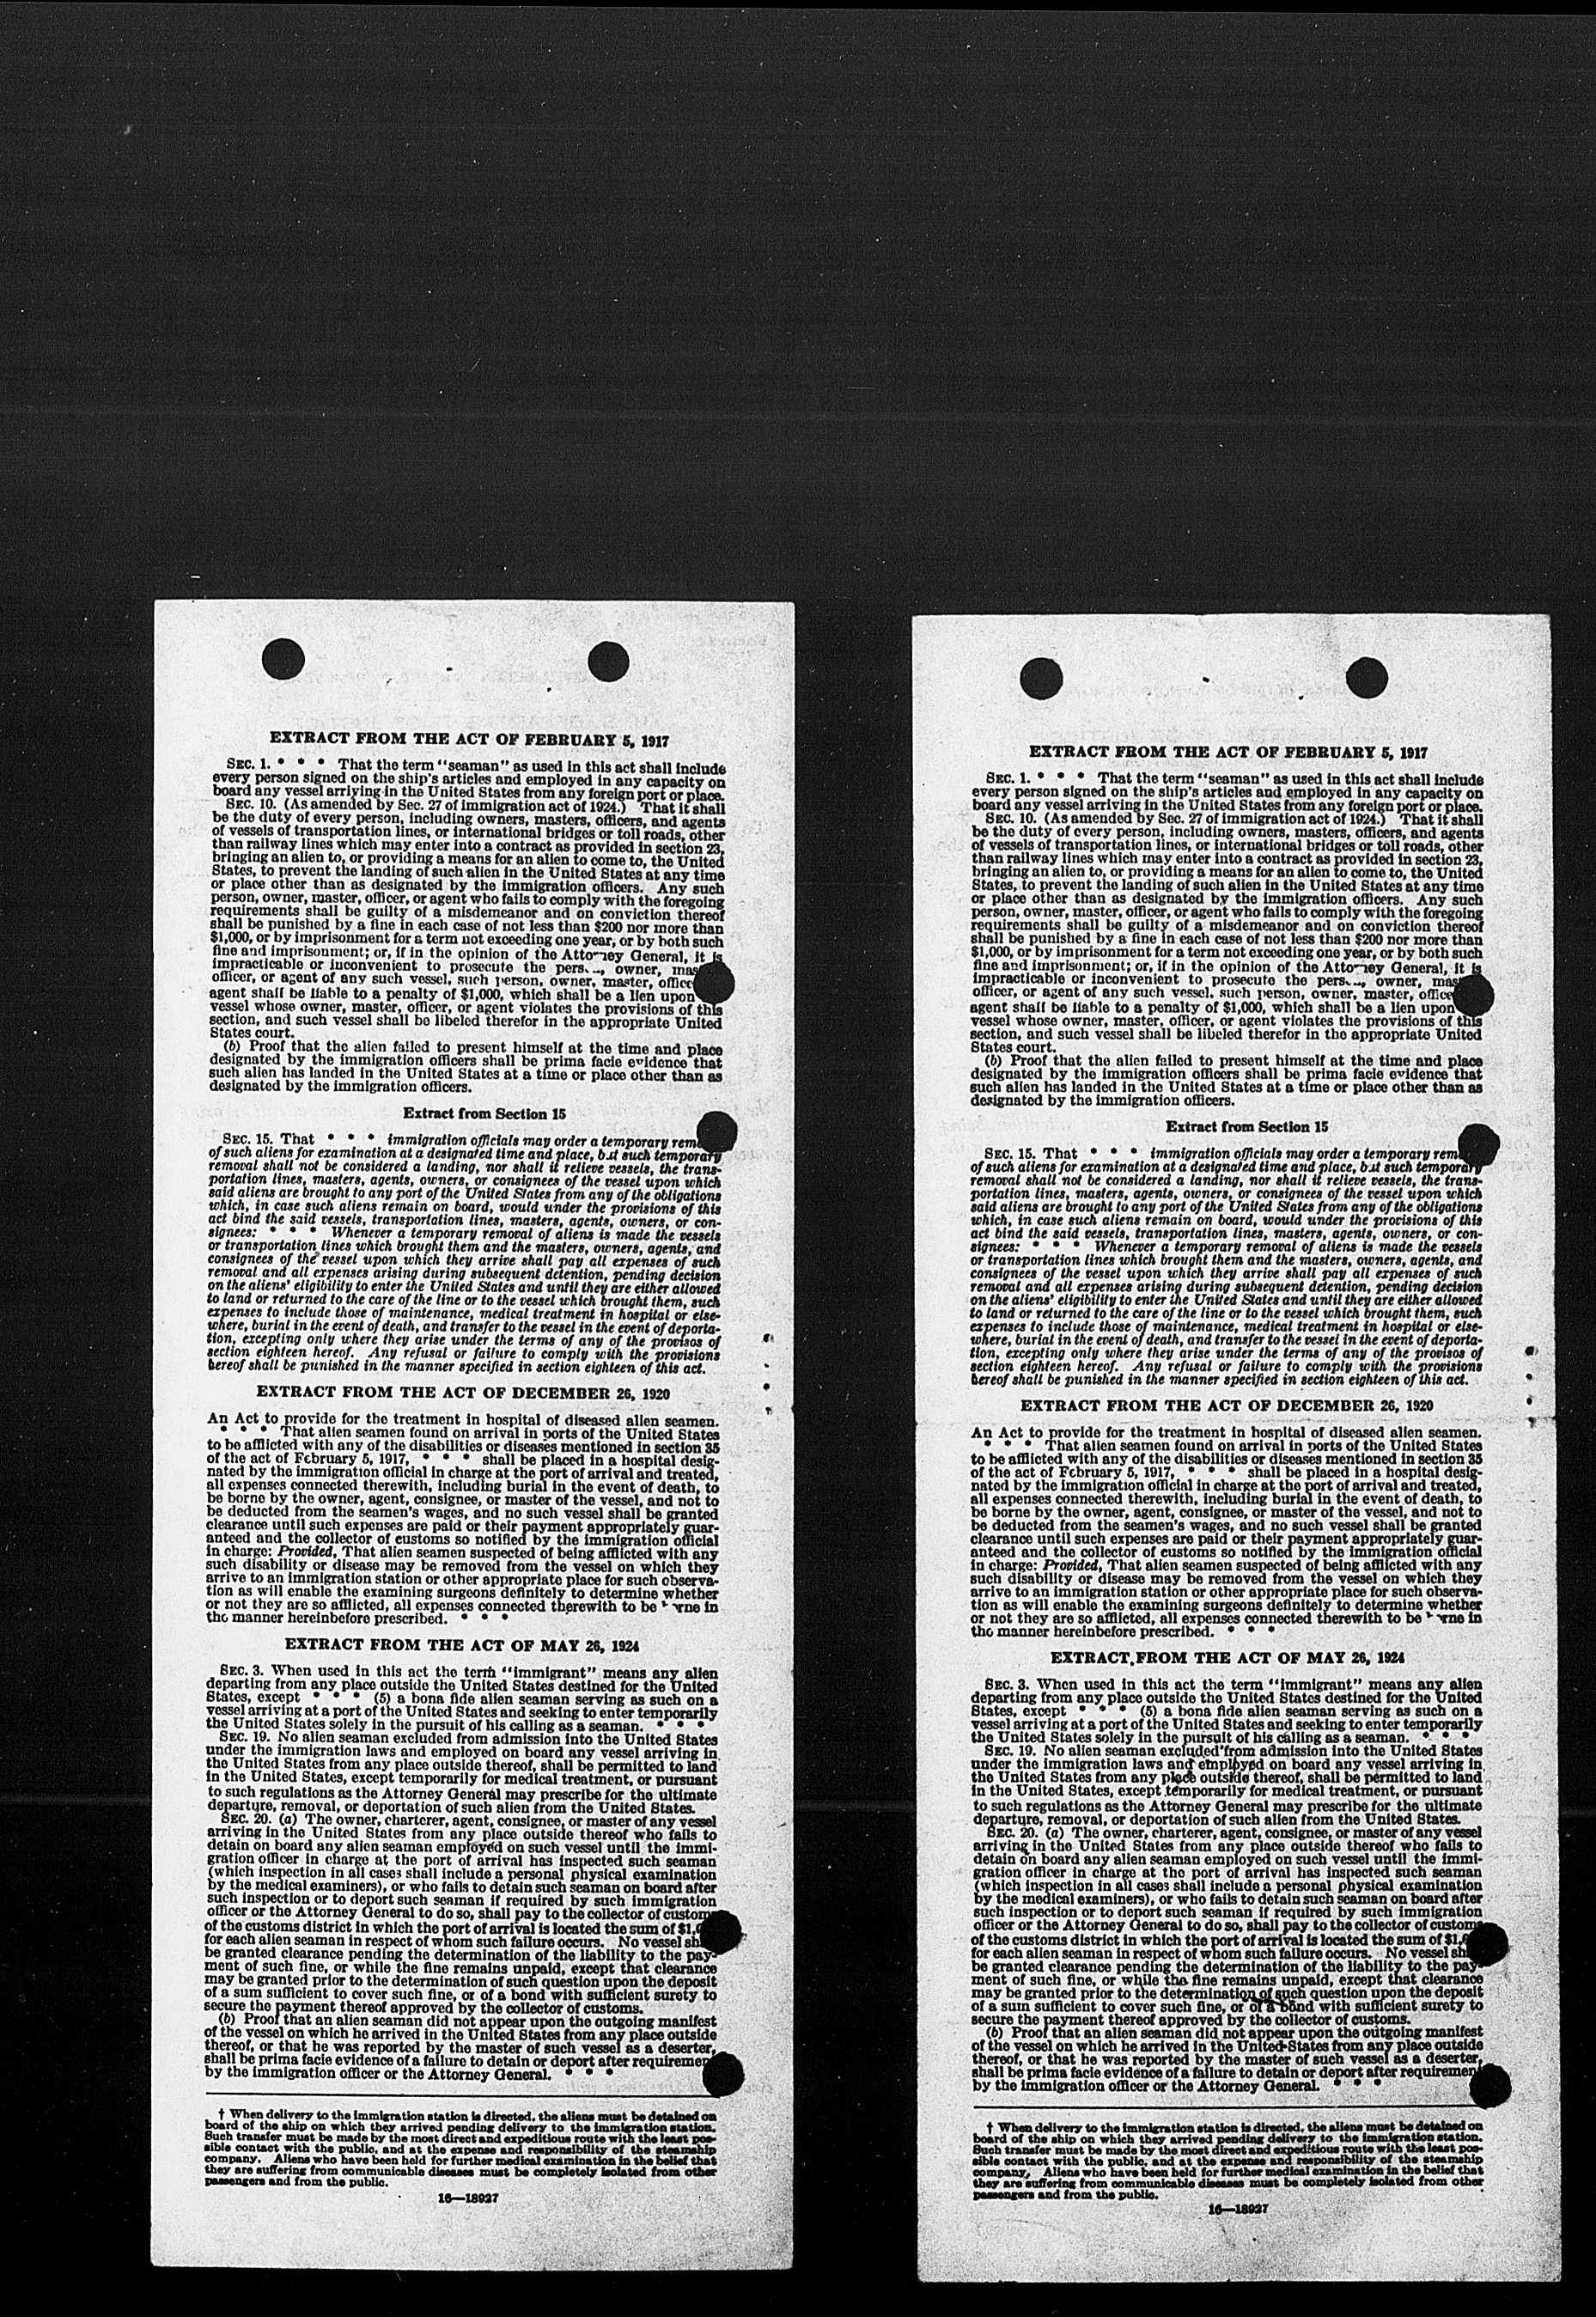 EXTRACT FROM THE ACT OF FEBRUARY 5, 1917
SEC. 1. * * * That the term "seaman" as used in this act shall include
every person signed on the ship's articles and employed in any capacity on
board any vessel arriving in the United States from any foreign port or place.
SEC. 10. (As amended by Sec. 27 of immigration act of 1924.) That it shall
be the duty of every person, including owners, masters, officers, and agents
of vessels of transportation lines, or international bridges or toll roads, other
than railway lines which may enter into a contract as provided in section 23,
bringing an alien to, or providing a means for an alien to come to, the United
States, to prevent the landing of such alien in the United States at any time
or place other than as designated by the immigration officers. Any such
person, owner, master, officer, or agent who fails to comply with the foregoing
requirements shall be guilty of a misdemeanor and on conviction thereof
shall be punished by a fine in each case of not less than $200 nor more than
$1,000, or by imprisonment for a term not exceeding one year, or by both such
fine and imprisonment; or, if in the opinion of the Attorney General, it is
impracticable or inconvenient to prosecute the pers owner, mas
officer, or agent of any such vessel, such person, owner, master, office
agent shall be liable to a penalty of $1,000, which shall be a lien upon
vessel whose owner, master, officer, or agent violates the provisions of this
section, and such vessel shall be libeled therefor in the appropriate United
States court.
(b) Proof that the alien failed to present himself at the time and place
designated by the immigration officers shall be prima facie evidence that
such alien has landed in the United States at a time or place other than as
designated by the immigration officers.
Extract from Section 15
SEC. 15. That * * * immigration officials may order a temporary rem
of such aliens for examination at a designated time and place, but such temporary
removal shall not be considered a landing, nor shall it relieve vessels, the trans-
portation lines, masters, agents, owners, or consignees of the vessel upon which
said aliens are brought to any port of the United States from any of the obligations
which, in case such aliens remain on board, would under the provisions of this
act bind the said vessels, transportation lines, masters, agents, owners, or con-
signees: * * * Whenever a temporary removal of aliens is made the vessels
or transportation lines which brought them and the masters, owners, agents, and
consignees of the vessel upon which they arrive shall pay all expenses of such
removal and all expenses arising during subsequent detention, pending decision
on the aliens' eligibility to enter the United States and until they are either allowed
to land or returned to the care of the line or to the vessel which brought them, such
expenses to include those of maintenance, medical treatment in hospital or else-
where, burial in the event of death, and transfer to the vessel in the event of deporta-
tion, excepting only where they arise under the terms of any of the provisos of
section eighteen hereof. Any refusal or failure to comply with the provisions
hereof shall be punished in the manner specified in section eighteen of this act.
EXTRACT FROM THE ACT OF DECEMBER 26, 1920
An Act to provide for the treatment in hospital of diseased alien seamen.
* * * That alien seamen found on arrival in ports of the United States
to be afflicted with any of the disabilities or diseases mentioned in section 35
of the act of February 5, 1917, * * * shall be placed in a hospital desig-
nated by the immigration official in charge at the port of arrival and treated,
all expenses connected therewith, including burial in the event of death, to
be borne by the owner, agent, consignee, or master of the vessel, and not to
be deducted from the seamen's wages, and no such vessel shall be granted
clearance until such expenses are paid or their payment appropriately guar-
anteed and the collector of customs so notified by the immigration official
in charge: Provided, That alien seamen suspected of being afflicted with any
such disability or disease may be removed from the vessel on which they
arrive to an immigration station or other appropriate place for such observa-
tion as will enable the examining surgeons definitely to determine whether
or not they are so afflicted, all expenses connected therewith to be in
the manner hereinbefore prescribed. * * *
EXTRACT FROM THE ACT OF MAY 26, 1924
SEC. 3. When used in this act the term "immigrant" means any alien
departing from any place outside the United States destined for the United
States, except * * * (5) a bona fide alien seaman serving as such on a
vessel arriving at a port of the United States and seeking to enter temporarily
the United States solely in the pursuit of his calling as a seaman. * * *
SEC. 19. No alien seaman excluded from admission into the United States
under the immigration laws and employed on board any vessel arriving in
the United States from any place outside thereof, shall be permitted to land
in the United States, except temporarily for medical treatment, or pursuant
to such regulations as the Attorney General may prescribe for the ultimate
departure, removal, or deportation of such alien from the United States.
SEC. 20. (a) The owner, charterer, agent, consignee, or master of any vessel
arriving in the United States from any place outside thereof who fails to
detain on board any alien seaman employed on such vessel until the immi-
gration officer in charge at the port of arrival has inspected such seaman
(which inspection in all cases shall include a personal physical examination
by the medical examiners), or who fails to detain such seaman on board after
such inspection or to deport such seaman if required by such immigration
officer or the Attorney General to do so, shall pay to the collector of customs
of the customs district in which the port of arrival is located the sum of $1,0
for each alien seaman in respect of whom such failure occurs. No vessel sh
be granted clearance pending the determination of the liability to the pay-
ment of such fine, or while the fine remains unpaid, except that clearance
may be granted prior to the determination of such question upon the deposit
of a sum sufficient to cover such fine, or of a bond with sufficient surety to
secure the payment thereof approved by the collector of customs.
(b) Proof that an alien seaman did not appear upon the outgoing manifest
of the vessel on which he arrived in the United States from any place outside
thereof, or that he was reported by the master of such vessel as a deserter,
shall be prima facie evidence of a failure to detain or deport after requiremen
by the immigration officer or the Attorney General. * * *
† When delivery to the immigration station is directed, the aliens must be detained on
board of the ship on which they arrived pending delivery to the immigration station.
Such transfer must be made by the most direct and expeditious route with the least pos-
sible contact with the public, and at the expense and responsibility of the steamship
company. Aliens who have been held for further medical examination in the belief that
they are suffering from communicable diseases must be completely isolated from other
passengers and from the public.
16—18927
EXTRACT FROM THE ACT OF FEBRUARY 5, 1917
SEC. 1. * * * That the term "seaman" as used in this act shall include
every person signed on the ship's articles and employed in any capacity on
board any vessel arriving in the United States from any foreign port or place.
SEC. 10. (As amended by Sec. 27 of immigration act of 1924.) That it shall
be the duty of every person, including owners, masters, officers, and agents
of vessels of transportation lines, or international bridges or toll roads, other
than railway lines which may enter into a contract as provided in section 23,
bringing an alien to, or providing a means for an alien to come to, the United
States, to prevent the landing of such alien in the United States at any time
or place other than as designated by the immigration officers. Any such
person, owner, master, officer, or agent who fails to comply with the foregoing
requirements shall be guilty of a misdemeanor and on conviction thereof
shall be punished by a fine in each case of not less than $200 nor more than
$1,000, or by imprisonment for a term not exceeding one year, or by both such
fine and imprisonment; or, if in the opinion of the Attorney General, it is
impracticable or inconvenient to prosecute the pers owner, mas
officer, or agent of any such vessel, such person, owner, master, office
agent shall be liable to a penalty of $1,000, which shall be a lien upon
vessel whose owner, master, officer, or agent violates the provisions of this
section, and such vessel shall be libeled therefor in the appropriate United
States court.
(b) Proof that the alien failed to present himself at the time and place
designated by the immigration officers shall be prima facie evidence that
such alien has landed in the United States at a time or place other than as
designated by the immigration officers.
Extract from Section 15
SEC. 15. That * * * immigration officials may order a temporary rem
of such aliens for examination at a designated time and place, but such temporary
removal shall not be considered a landing, nor shall it relieve vessels, the trans-
portation lines, masters, agents, owners, or consignees of the vessel upon which
said aliens are brought to any port of the United States from any of the obligations
which, in case such aliens remain on board, would under the provisions of this
act bind the said vessels, transportation lines, masters, agents, owners, or con-
signees: * * * Whenever a temporary removal of aliens is made the vessels
or transportation lines which brought them and the masters, owners, agents, and
consignees of the vessel upon which they arrive shall pay all expenses of such
removal and all expenses arising during subsequent detention, pending decision
on the aliens' eligibility to enter the United States and until they are either allowed
to land or returned to the care of the line or to the vessel which brought them, such
expenses to include those of maintenance, medical treatment in hospital or else-
where, burial in the event of death, and transfer to the vessel in the event of deporta-
tion, excepting only where they arise under the terms of any of the provisos of
section eighteen hereof. Any refusal or failure to comply with the provisions
hereof shall be punished in the manner specified in section eighteen of this act.
EXTRACT FROM THE ACT OF DECEMBER 26, 1920
An Act to provide for the treatment in hospital of diseased alien seamen.
* * * That alien seamen found on arrival in ports of the United States
to be afflicted with any of the disabilities or diseases mentioned in section 35
of the act of February 5, 1917, * * * shall be placed in a hospital desig-
nated by the immigration official in charge at the port of arrival and treated,
all expenses connected therewith, including burial in the event of death, to
be borne by the owner, agent, consignee, or master of the vessel, and not to
be deducted from the seamen's wages, and no such vessel shall be granted
clearance until such expenses are paid or their payment appropriately guar-
anteed and the collector of customs so notified by the immigration official
in charge: Provided, That alien seamen suspected of being afflicted with any
such disability or disease may be removed from the vessel on which they
arrive to an immigration station or other appropriate place for such observa-
tion as will enable the examining surgeons definitely to determine whether
or not they are so afflicted, all expenses connected therewith to be in
the manner hereinbefore prescribed. * * *
EXTRACT FROM THE ACT OF MAY 26, 1924
SEC. 3. When used in this act the term "immigrant" means any alien
departing from any place outside the United States destined for the United
States, except * * * (5) a bona fide alien seaman serving as such on a
vessel arriving at a port of the United States and seeking to enter temporarily
the United States solely in the pursuit of his calling as a seaman. * * *
SEC. 19. No alien seaman excluded from admission into the United States
under the immigration laws and employed on board any vessel arriving in
the United States from any place outside thereof, shall be permitted to land
in the United States, except temporarily for medical treatment, or pursuant
to such regulations as the Attorney General may prescribe for the ultimate
departure, removal, or deportation of such alien from the United States.
SEC. 20. (a) The owner, charterer, agent, consignee, or master of any vessel
arriving in the United States from any place outside thereof who fails to
detain on board any alien seaman employed on such vessel until the immi-
gration officer in charge at the port of arrival has inspected such seaman
(which inspection in all cases shall include a personal physical examination
by the medical examiners), or who fails to detain such seaman on board after
such inspection or to deport such seaman if required by such immigration
officer or the Attorney General to do so, shall pay to the collector of customs
of the customs district in which the port of arrival is located the sum of $1,0
for each alien seaman in respect of whom such failure occurs. No vessel sh
be granted clearance pending the determination of the liability to the pay-
ment of such fine, or while the fine remains unpaid, except that clearance
may be granted prior to the determination of such question upon the deposit
of a sum sufficient to cover such fine, or of a bond with sufficient surety to
secure the payment thereof approved by the collector of customs.
(b) Proof that an alien seaman did not appear upon the outgoing manifest
of the vessel on which he arrived in the United States from any place outside
thereof, or that he was reported by the master of such vessel as a deserter,
shall be prima facie evidence of a failure to detain or deport after requirement
by the immigration officer or the Attorney General. * * *
† When delivery to the immigration station is directed, the aliens must be detained on
board of the ship on which they arrived pending delivery to the immigration station.
Such transfer must be made by the most direct and expeditious route with the least pos-
sible contact with the public, and at the expense and responsibility of the steamship
company. Aliens who have been held for further medical examination in the belief that
they are suffering from communicable diseases must be completely isolated from other
passengers and from the public.
16—18927